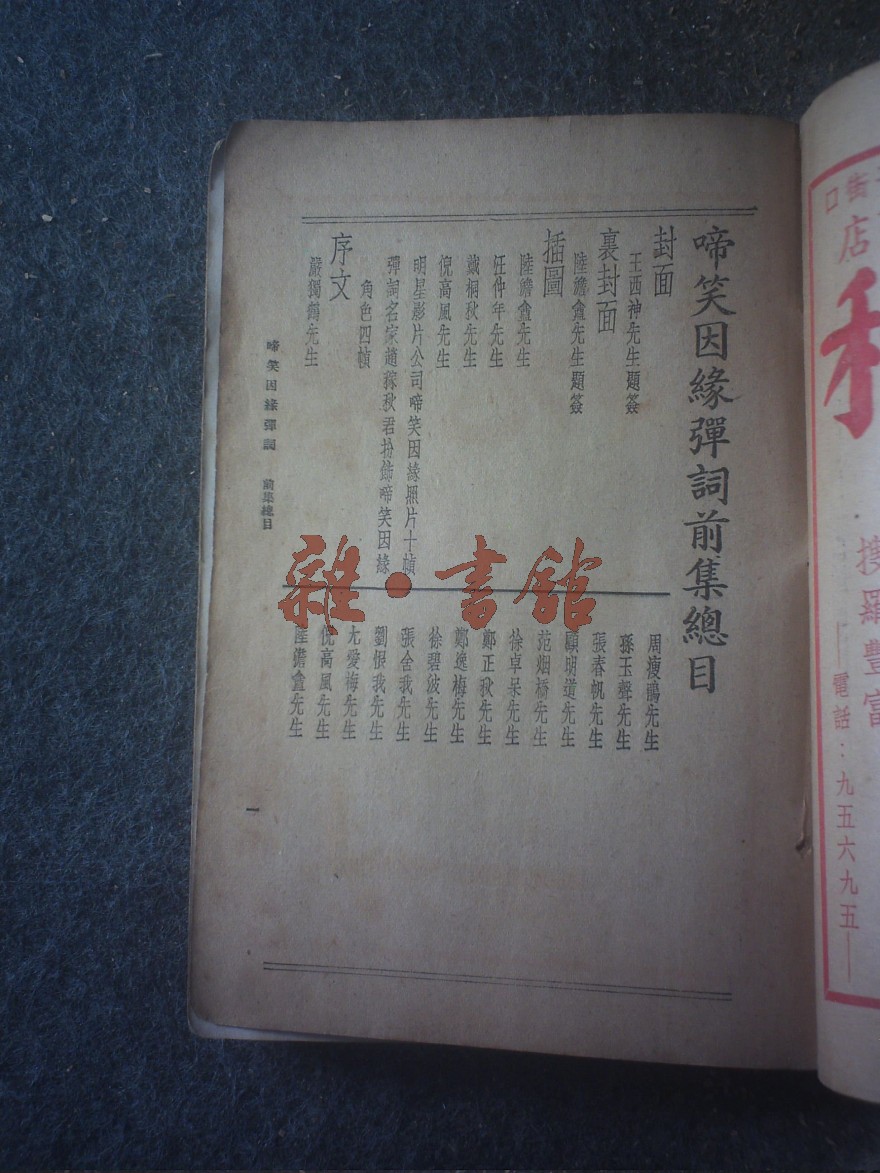 啼笑因緣彈詞前集總目
封面
王西神先生題簽
裏封面
陸澹盦先生題簽
插圖
陸澹盦先生
任仲年先生
戴桐秋先生
倪高風先生
明星影片公司啼笑因緣照片十幀
彈詞名家趙稼秋君扮飾啼笑因緣
角色四幀
序文
嚴獨鶴先生
周瘦鵑先生
孫玉聲先生
張春帆先生
顧明道先生
范烟橋先生
徐卓呆先生
鄭正秋先生
鄭逸梅先生
徐碧波先生
張舍我先生
劉恨我先生
尤愛梅先生
倪高風先生
陸澹盦先生
啼笑因緣彈詞 前集總目
一
雜·書館
店
搜羅豐富
電話：九五六九五